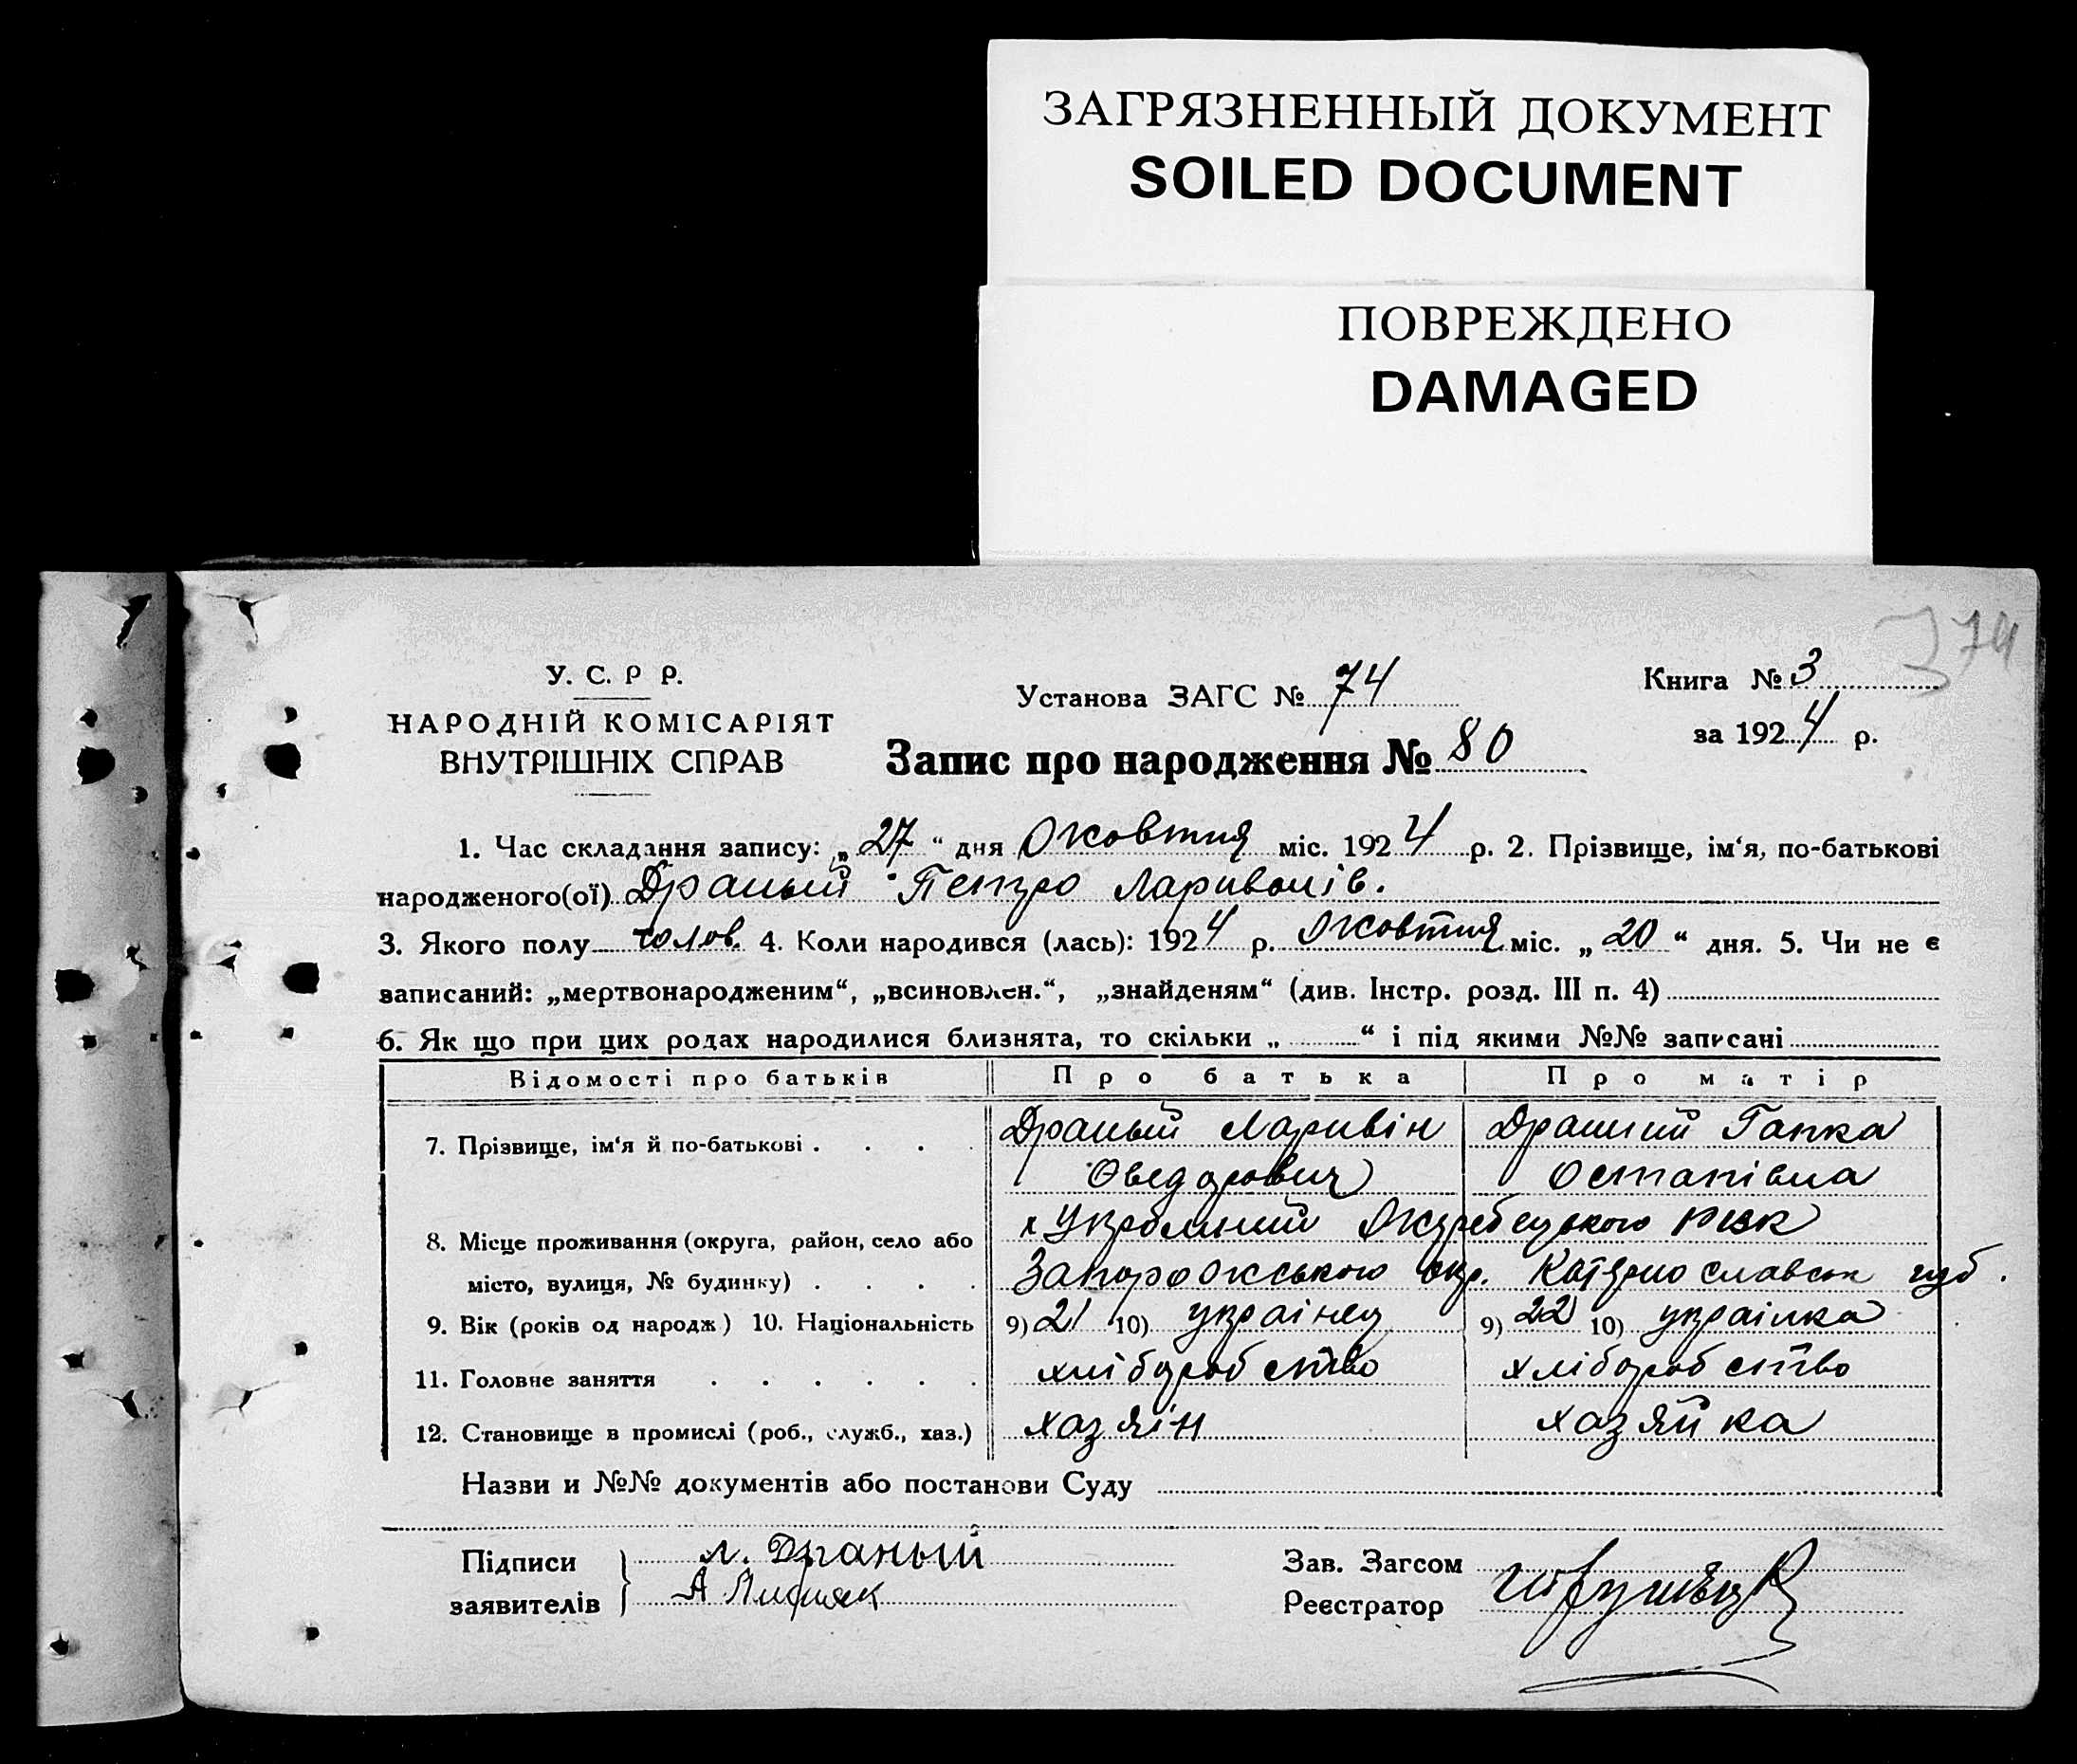 ЗАГРЯЗНЕННЫЙ ДОКУМЕНТ
SOILED DOCUMENT
ПОВРЕЖДЕНО
DAMAGED
374
У. С. Р Р.
НАРОДНІЙ КОМІСАРІЯТ
ВНУТРІШНІХ СПРАВ
Установа ЗАГС № 74
Книга № 3
за 1924 р.
Запис про народження № 80
1. Час складання запису: „27“ дня Жовтня міс. 1924 р. 2. Прізвище, ім‘я, по-батькові
народженого(ої) Драный Петро Ларивонів.
3. Якого полу чолов. 4. Коли народився (лась): 1924 р. Жовтня міс. „20“ дня. 5. Чи не є
записаний: „мертвонародженим“, „всиновлен.“, „знайденям“ (див. Інстр. розд. III п. 4)
6. Як що при цих родах народилися близнята, то скільки „ “ і під якими №№ записані
Відомості про батьків Про батька Про матір
7. Прізвище, ім‘я й по-батькові . . . . Драный Ларивін Драний Гапка
Остапівна
8. Місце проживання (округа, район, село або х
місто, вулиця, № будинку) . . . . Запорожського окр. Катериославськ губ.
9. Вік (років од народж) 10. Національність 9) 21 10) українец 9) 22 10) українка
11. Головне заняття . . . . . . хліборобство хліборобство
12. Становище в промислі (роб., служб., хаз.) хазяін хазяйка
Назви и №№ документів або постанови Суду
Підписи л. Драный
заявителів А
Зав. Загсом
Реєстратор